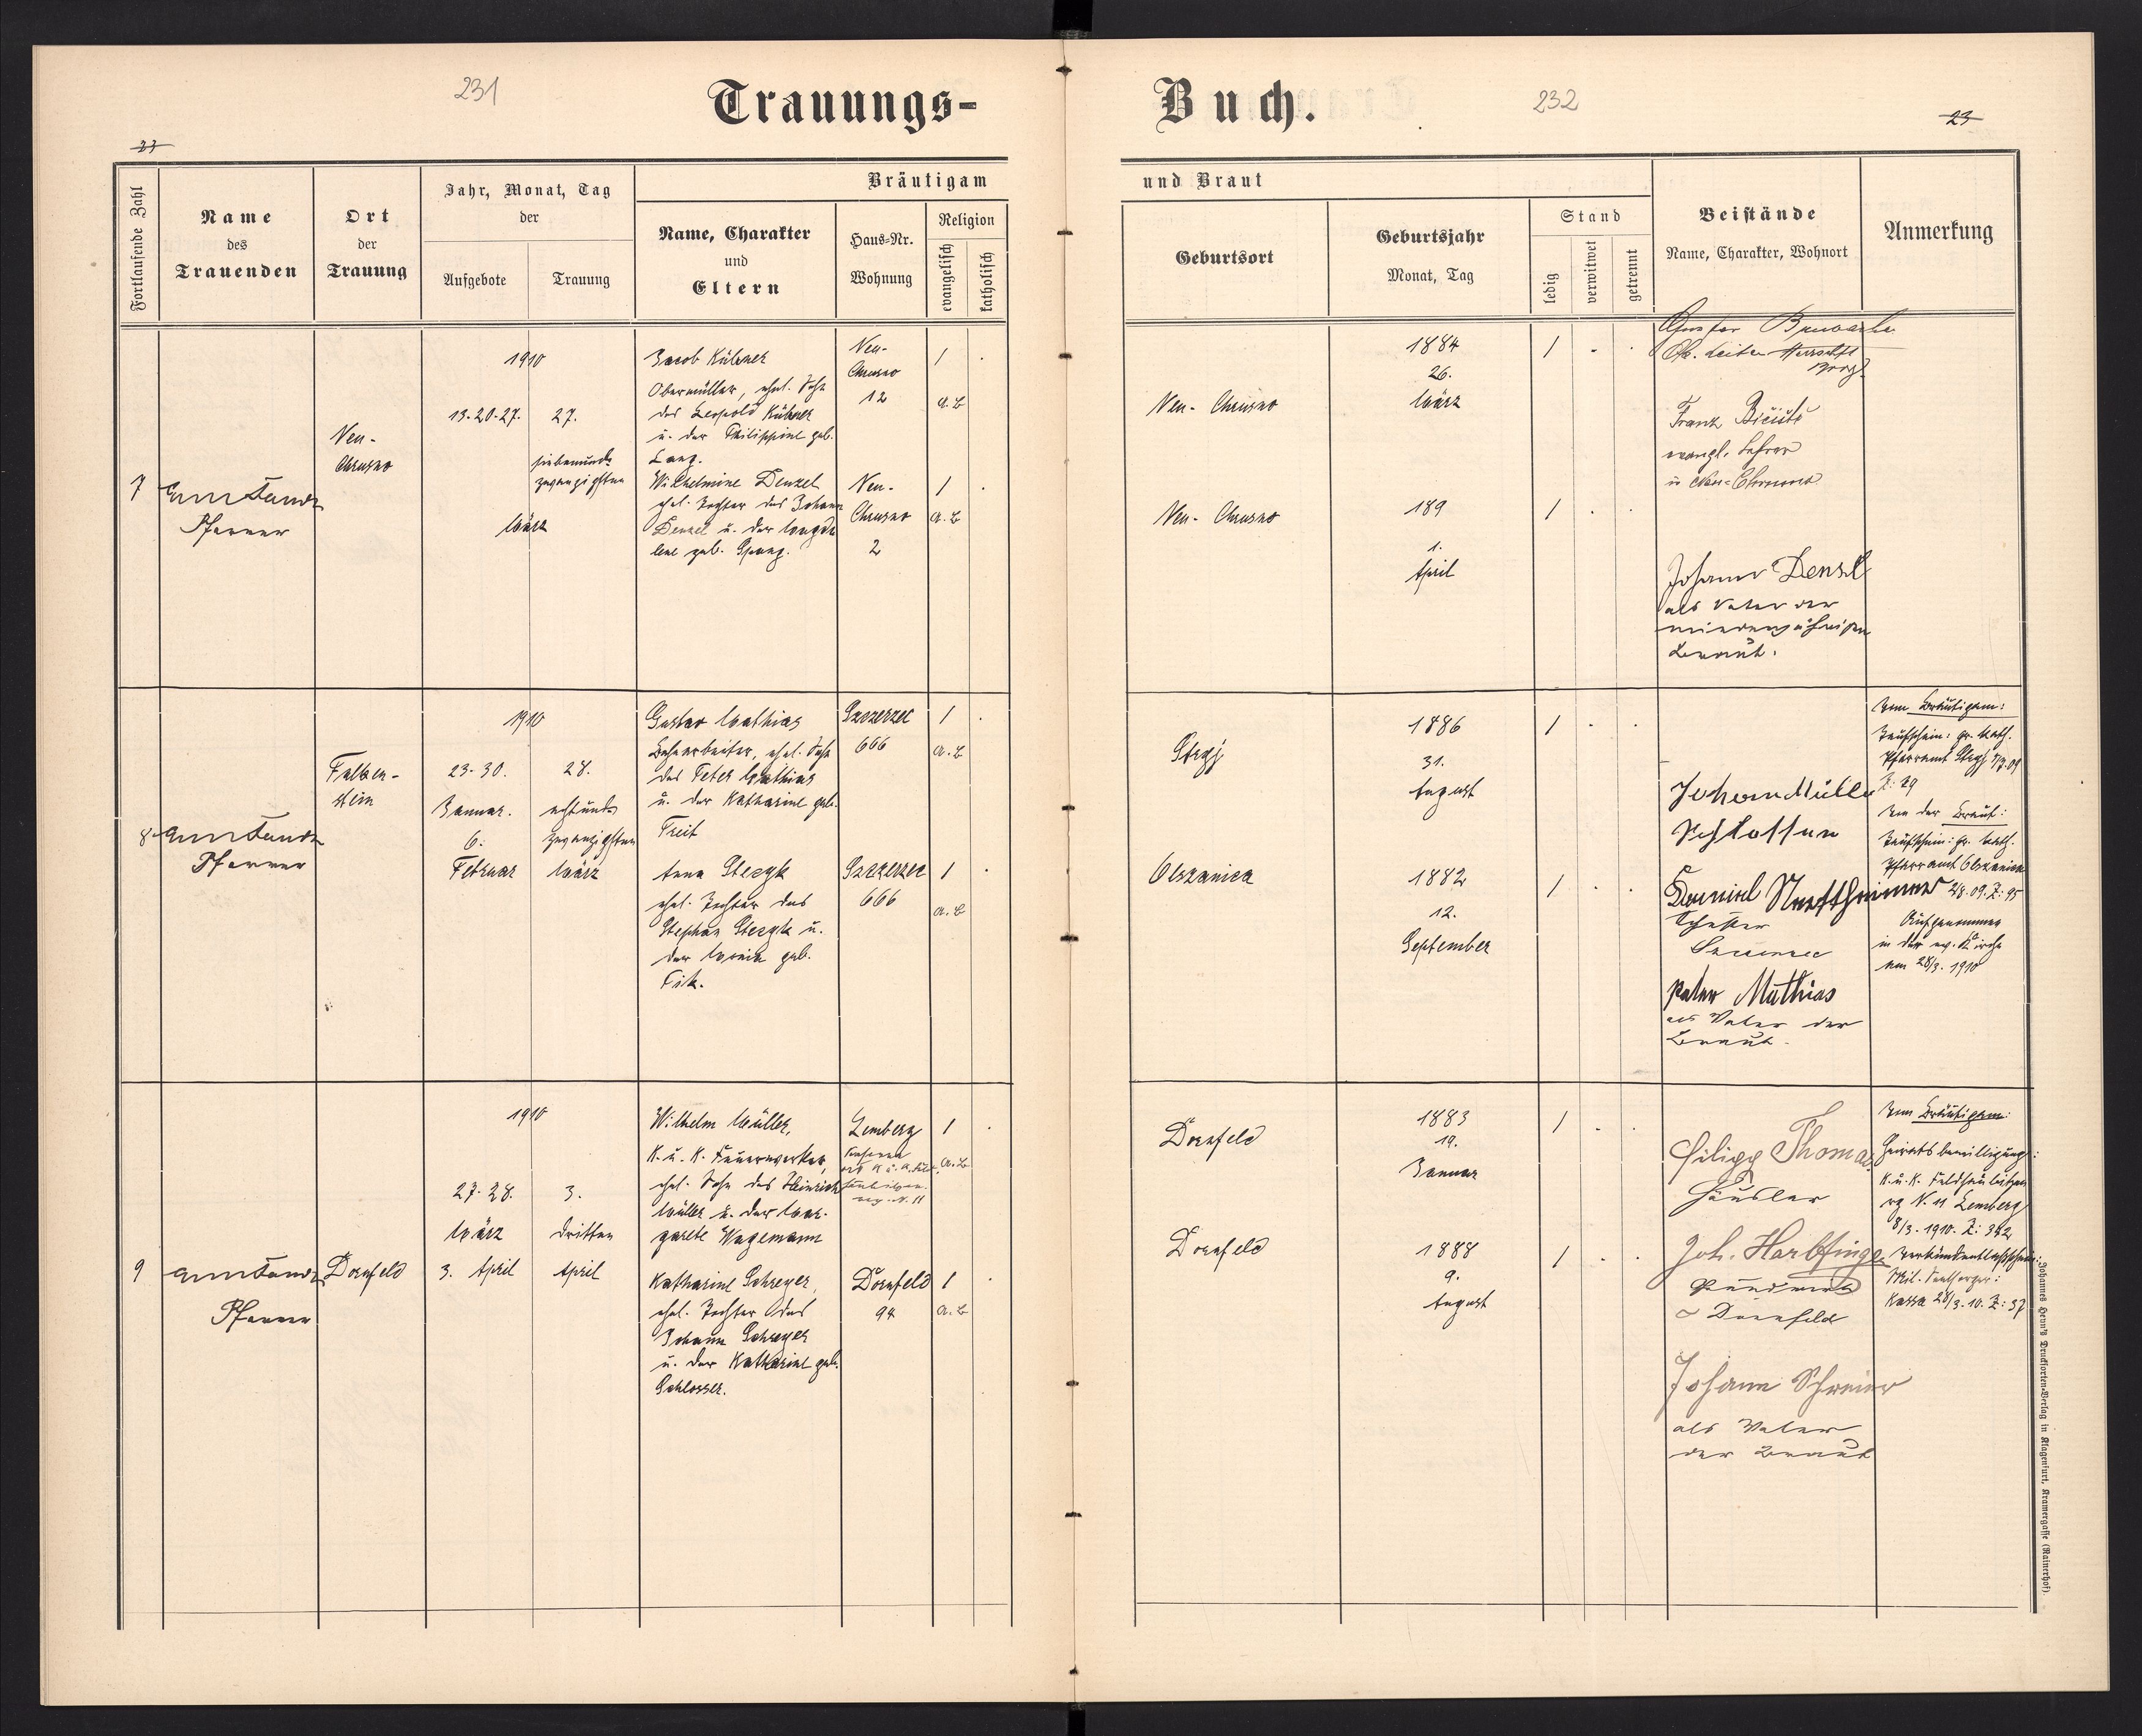 231
Trauungs-
Buch.
232
23
23
Fortlaufende Zahl
Name
des
Trauenden
Ort
der
Trauung
Jahr, Monat, Tag
der
Aufgebote
Trauung
Bräutigam
Name, Charakter
und
Eltern
Haus-Nr.
Wohnung
Religion
evangelisch
katholisch
und Braut
Geburtsort
Geburtsjahr
Monat, Tag
Stand
ledig
verwitwet
getrennt
Beistände
Name, Charakter, Wohnort
Anmerkung
7
Pfarrer
Neu-
Chrusno
1910
13. 20. 27.
27.
siebenund-
zwanzigsten
März
Jacob Kühner
Obermüller, ehel. Sohn
des Leopold Kühner
u. der Philippine geb.
Lang.
Neu-
Chrusno
12
1
A. B
Wilhelmine Denzel
ehel. Tochter des Johann
Denzel u. der Magda
lene geb. Spang.
Neu-
Chrusno
2
1
A. B
Neu-Chrusno
1884
26.
März
1
Neu-Chrusno
189
1.
April
1
Franz
evangl. Lehrer
in Neu-Chrusno
Johann Denzel
als Vater der
minderjährigen
Braut.
8
Pfarrer
Falken-
stein
1910
23. 30.
Januar.
6.
Februar
28.
achtund-
zwanzigsten
März
Gustav Mathias
Bahnarbeiter, ehel. Sohn
des Peter Mathias
u. der Katharine geb.
Freit
Szczerzec
666
1
A. B
Anna Steczyk
ehel. Tochter des
Stephan Steczyk u.
der Maria geb.
Fik.
Szczerzec
666
1
A. B
Stryj
1886
31.
August
1
Olszanica
1882
12.
September
1
Johann Müller
Schlosser
Daniel
Peter Mathias
als Vater der
Braut.
Vom Bräutigam:
Taufschein: gr. kath.
Pfarramt Stryj
Z: 29
Von der Braut:
Taufschein: gr. kath.
Pfarramt Olszanica
2/8. 09. Z: 95
Aufgenommen
in der ev. Kirche
am 28/3. 1910
9
Pfarrer
Dornfeld
1910
27. 28.
März
3. April
3.
dritten
April
Wilhelm Müller,
K. u. K. Feuerwerker,
ehel. Sohn des Heinrich
Müller u. der Mar-
garete Wagemann
Lemberg
1
A. B
Katharine Schreyer,
ehel. Tochter des
Johann Schreyer
u. der Katharine geb.
Schlosser.
Dornfeld
94
1
A. B
Dornfeld
1883
19.
Januar
1
Dornfeld
1888
9.
August
1
Filipp Thomas
Häusler
Joh. Harlfinger
Dornfeld
Johann Schreier
als Vater
der Braut
Vom Bräutigam:
Heiratsbewilligung:
K. u. K. Feldhaubitzen
rg N. 11 Lemberg
8/3. 1910. Z: 342
Verkündentlaßschein:
Mil. Seelsorger:
Kassa 28/3. 10. Z: 37
Johannes Heyn's Drucksorten-Verlag in Klagenfurt, Kramergasse (Rainerhof).